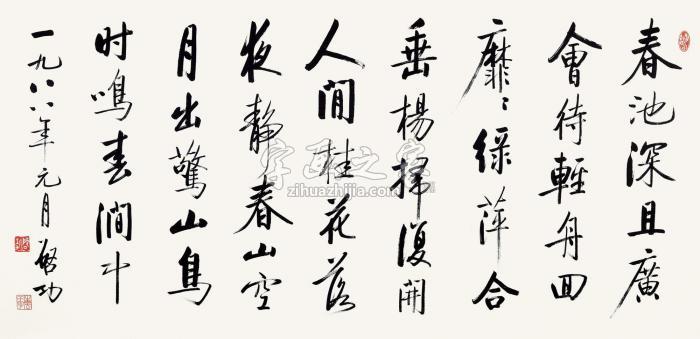 春池深且廣
會待輕舟回
靡〻綠萍合
垂楊掃復開
人閒桂花落
夜靜春山空
月出驚山鳥
时鳴春澗中
一九八八年元月 啓功
字画之家
zihuazhijia.com